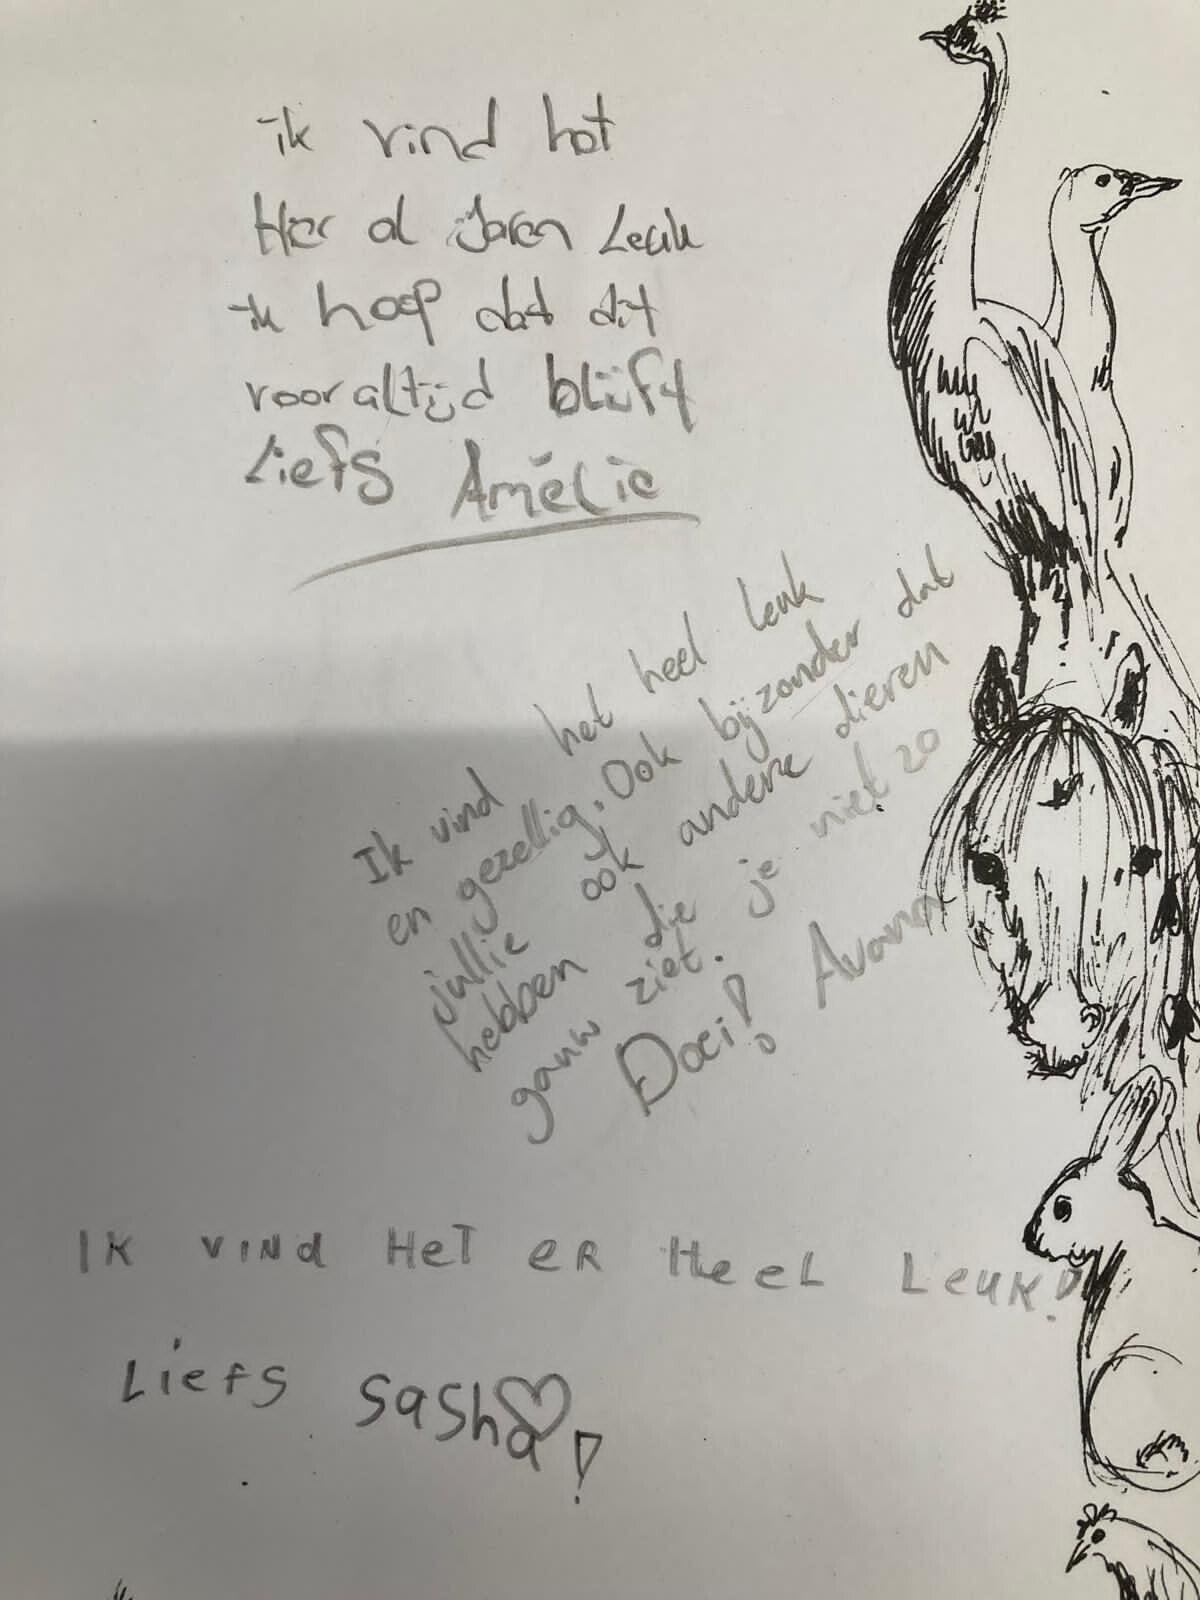 ik vind het
Hier al Jaren Leuk
ik hoop dat dit
voor altijd blijft
Liefs Amélie
Ik vind het heel leuk
en gezellig. Ook bijzonder dat
jullie ook andere dieren
hebben die je niet zo
gauw ziet.
Doei!
IK VINd HeT eR HeeL LeuK!
Liefs Sasha!